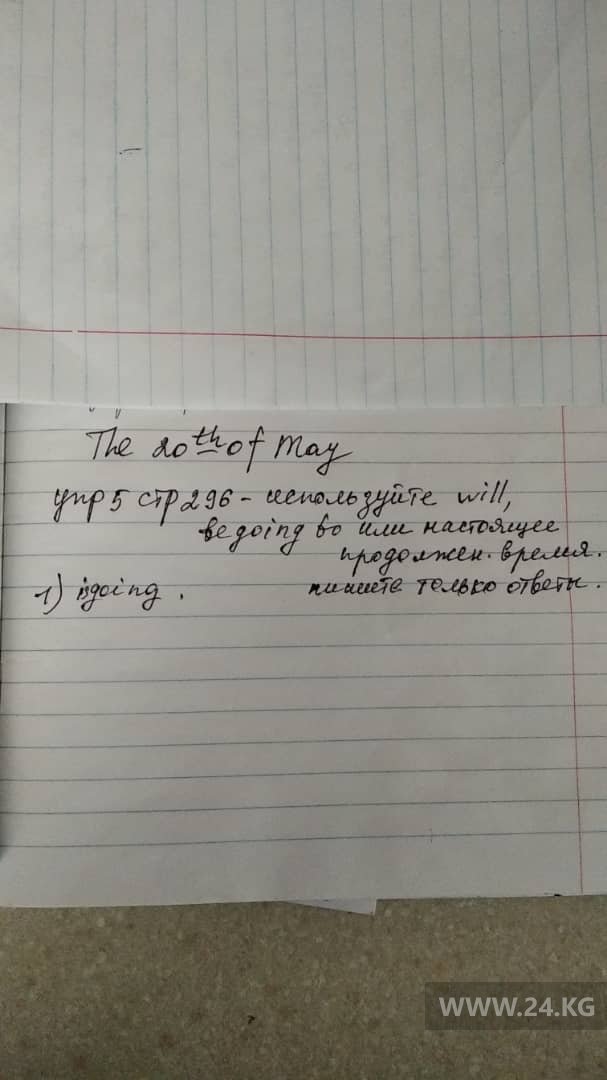 The 20th of May
упр 5 стр 296 - используйте will,
be going to или настоящее
продолжен. время.
1) isgoing . пишите только ответы.
WWW.24.KG